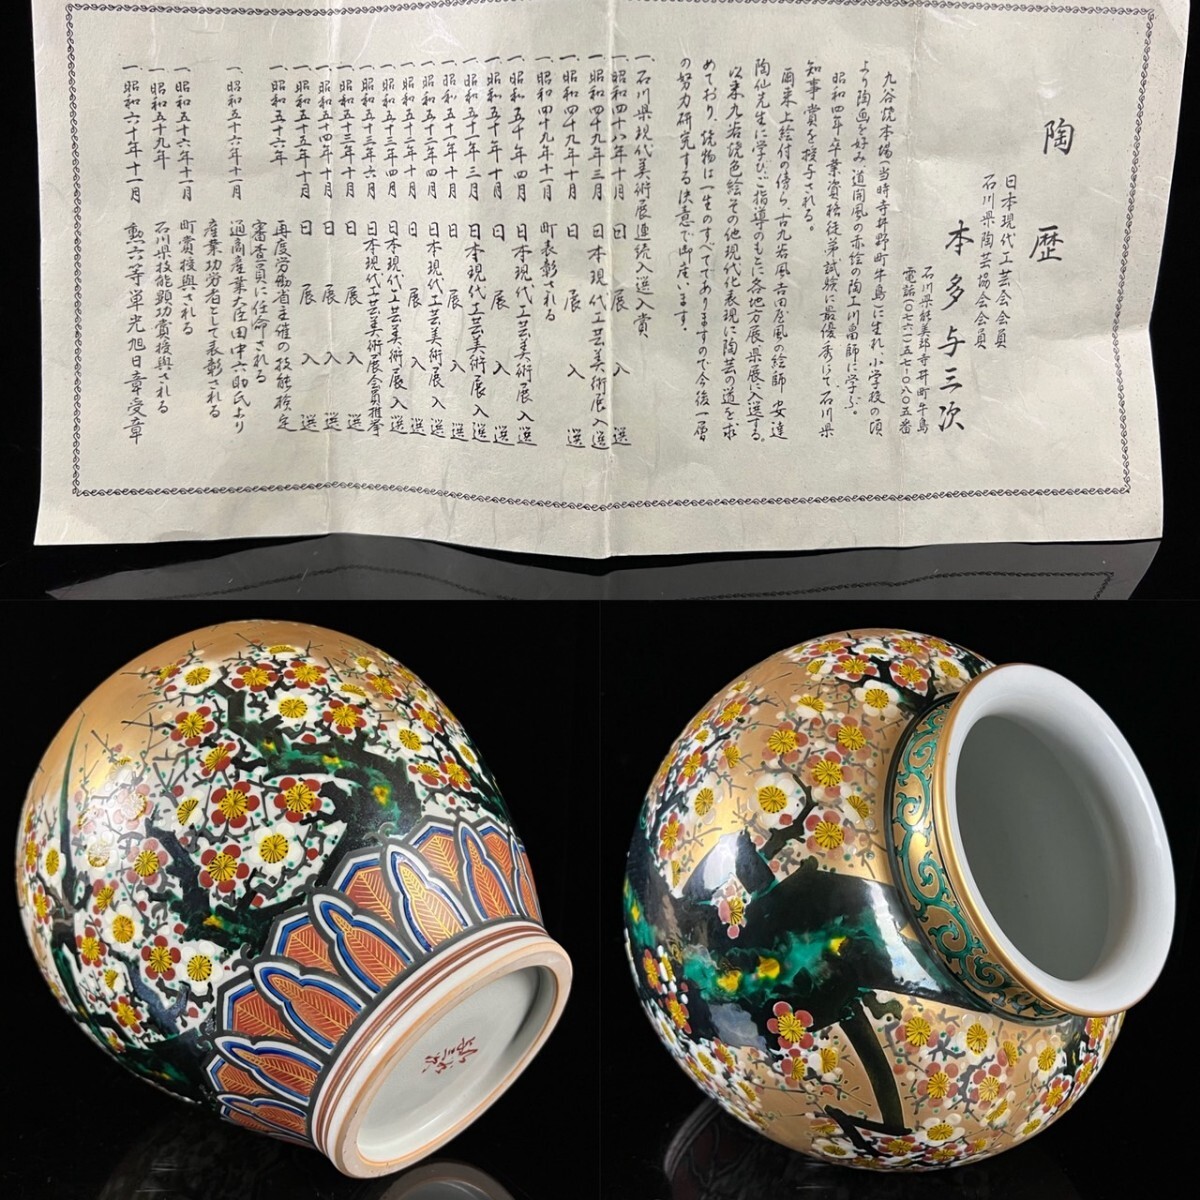 陶歴
日本現代工芸会会員
石川県陶芸協会会員
本多与三次
石川県能美郡寺井町牛島
電話(〇七六一)五七-〇八〇五番
九谷焼本場(当時寺井野町牛島)に生れ、小学校の頃
より陶画を好み道開風の赤絵の陶工川畠師に学ぶ。
昭和四年卒業資格徒弟試験に最優秀にて石川県
知事賞を授与される。
爾来上絵付の傍ら、古九谷風吉田屋風の絵師安達
陶仙先生に学び、ご指導のもとに各地方展、県展に入選する。
以来九谷焼色絵その他現代化表現に陶芸の道を求
めており、焼物は一生のすべてでありますので今後一層
の努力研究する決意で御座います。
一、石川県現代美術展連続入選入賞
一、昭和四十八年十月 日展入選
一、昭和四十九年三月 日本現代工芸美術展入選
一、昭和四十九年十月 日展入選
一、昭和四十九年十一月 町表彰される
一、昭和五十年四月 日本現代工芸美術展入選
一、昭和五十年十月 日展入選
一、昭和五十一年三月 日本現代工芸美術展入選
一、昭和五十一年十月 日展入選
一、昭和五十二年四月 日本現代工芸美術展入選
一、昭和五十二年十月 日展入選
一、昭和五十三年四月 日本現代工芸美術展入選
一、昭和五十三年六月 日本現代工芸美術展会員推挙
一、昭和五十三年十月 日展入選
一、昭和五十四年十月 日展入選
一、昭和五十五年十月 日展入選
一、昭和五十六年 再度労働省主催の技能検定
審査員に任命される
一、昭和五十六年十一月 通商産業大臣田中六助氏より
産業功労者として表彰される
一、昭和五十六年十一月 町賞授与される
一、昭和五十九年 石川県技能顕功賞授与される
一、昭和六十年十一月 勲六等単光旭日章受章